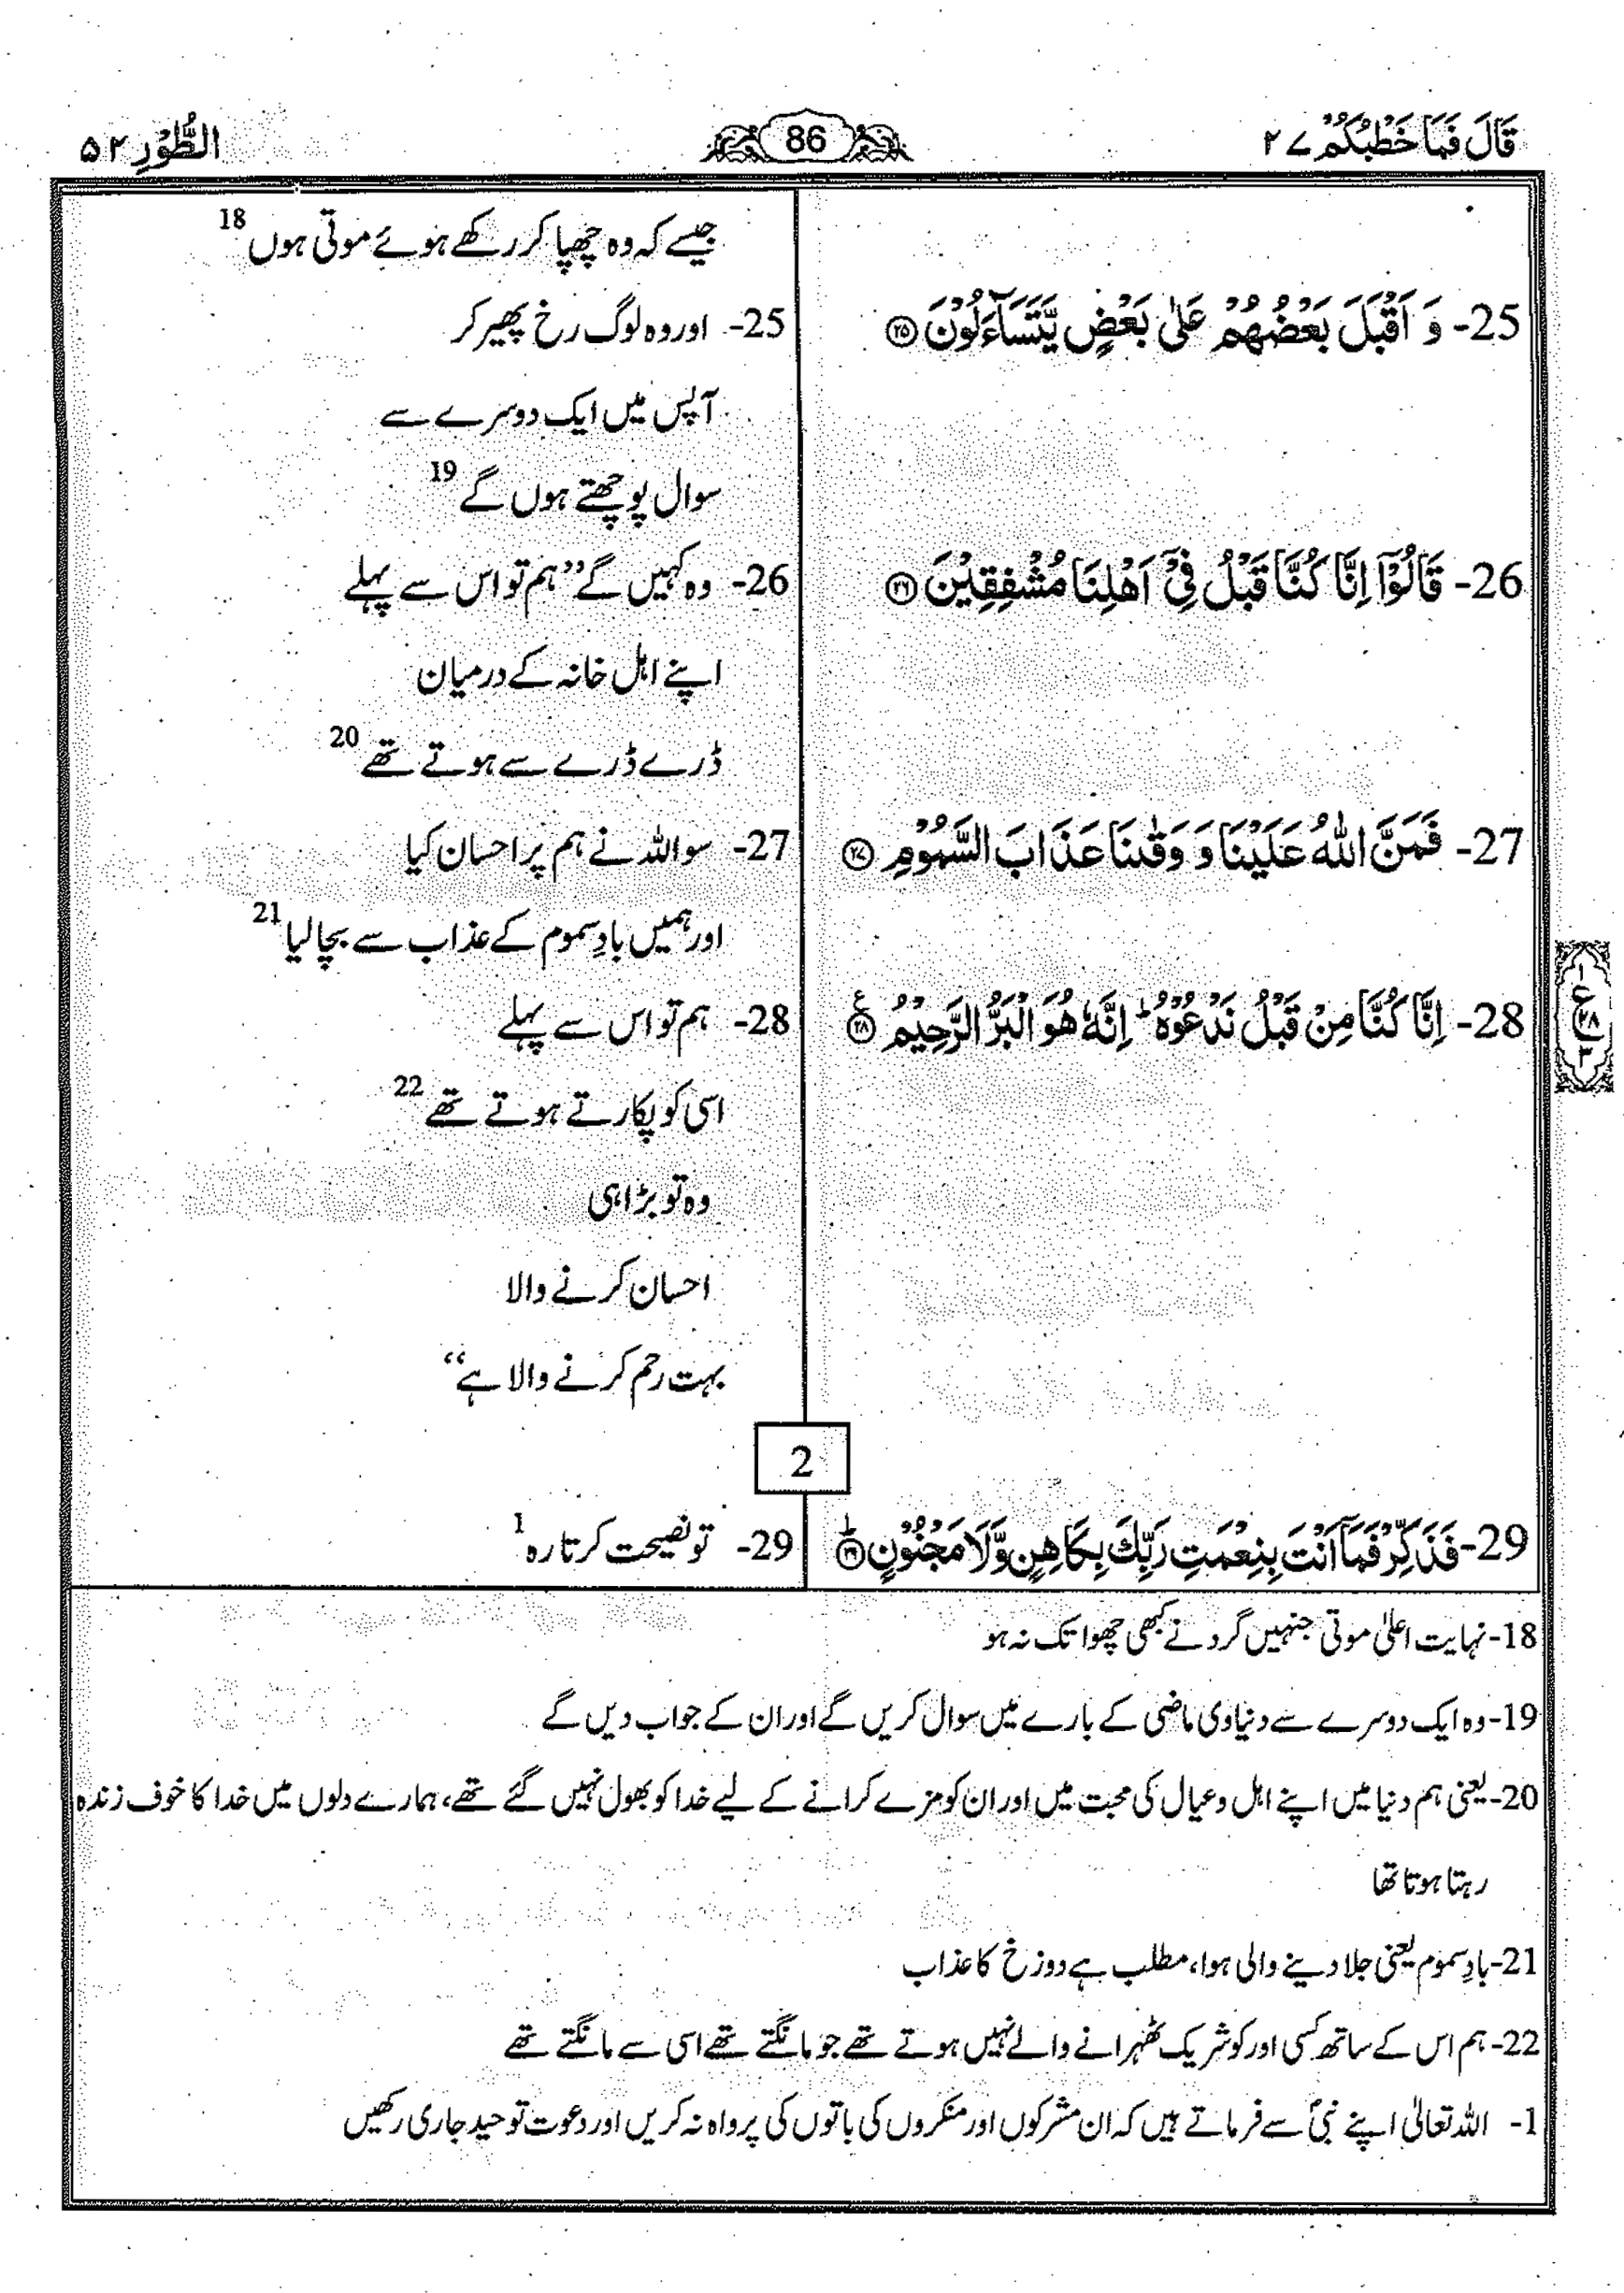 قَالَ فَمَا خَطْبُكُمْ ۲۷
86
الطُّوْرِ ۵۲
جیسے کہ وہ چھپا کر رکھے ہوئے موتی ہوں 18
25- وَ اَقْبَلَ بَعْضُهُمْ عَلٰى بَعْضٍ يَّتَسَآءَلُوْنَ ﴿۲۵﴾
25- اور وہ لوگ رخ پھیر کر
آپس میں ایک دوسرے سے
سوال پوچھتے ہوں گے 19
26- قَالُوْۤا اِنَّا كُنَّا قَبْلُ فِيْۤ اَهْلِنَا مُشْفِقِيْنَ ﴿۲۶﴾
26- وہ کہیں گے ’’ہم تو اس سے پہلے
اپنے اہل خانہ کے درمیان
ڈرے ڈرے سے ہوتے تھے 20
27- فَمَنَّ اللّٰهُ عَلَيْنَا وَ وَقٰىنَا عَذَابَ السَّمُوْمِ ﴿۲۷﴾
27- سو اللہ نے ہم پر احسان کیا
اور ہمیں بادِ سموم کے عذاب سے بچالیا 21
28- اِنَّا كُنَّا مِنْ قَبْلُ نَدْعُوْهُ ؕ اِنَّهٗ هُوَ الْبَرُّ الرَّحِيْمُ ﴿۲۸﴾ ع
28- ہم تو اس سے پہلے
اسی کو پکارتے ہوتے تھے 22
وہ تو بڑا ہی
احسان کرنے والا
بہت رحم کرنے والا ہے‘‘
۱
ع
۲۸
۳
2
29- فَذَكِّرْ فَمَاۤ اَنْتَ بِنِعْمَتِ رَبِّكَ بِكَاهِنٍ وَّلَا مَجْنُوْنٍ ﴿۲۹﴾ؕ
29- تو نصیحت کرتا رہ 1
18- نہایت اعلیٰ موتی جنہیں گرد نے کبھی چھوا تک نہ ہو
19- وہ ایک دوسرے سے دنیاوی ماضی کے بارے میں سوال کریں گے اور ان کے جواب دیں گے
20- یعنی ہم دنیا میں اپنے اہل و عیال کی محبت میں اور ان کو مزے کرانے کے لیے خدا کو بھول نہیں گئے تھے، ہمارے دلوں میں خدا کا خوف زندہ
رہتا ہوتا تھا
21- بادِ سموم یعنی جلا دینے والی ہوا، مطلب ہے دوزخ کا عذاب
22- ہم اس کے ساتھ کسی اور کو شریک ٹھہرانے والے نہیں ہوتے تھے جو مانگتے تھے اسی سے مانگتے تھے
1- اللہ تعالیٰ اپنے نبیؐ سے فرماتے ہیں کہ ان مشرکوں اور منکروں کی باتوں کی پرواہ نہ کریں اور دعوت توحید جاری رکھیں